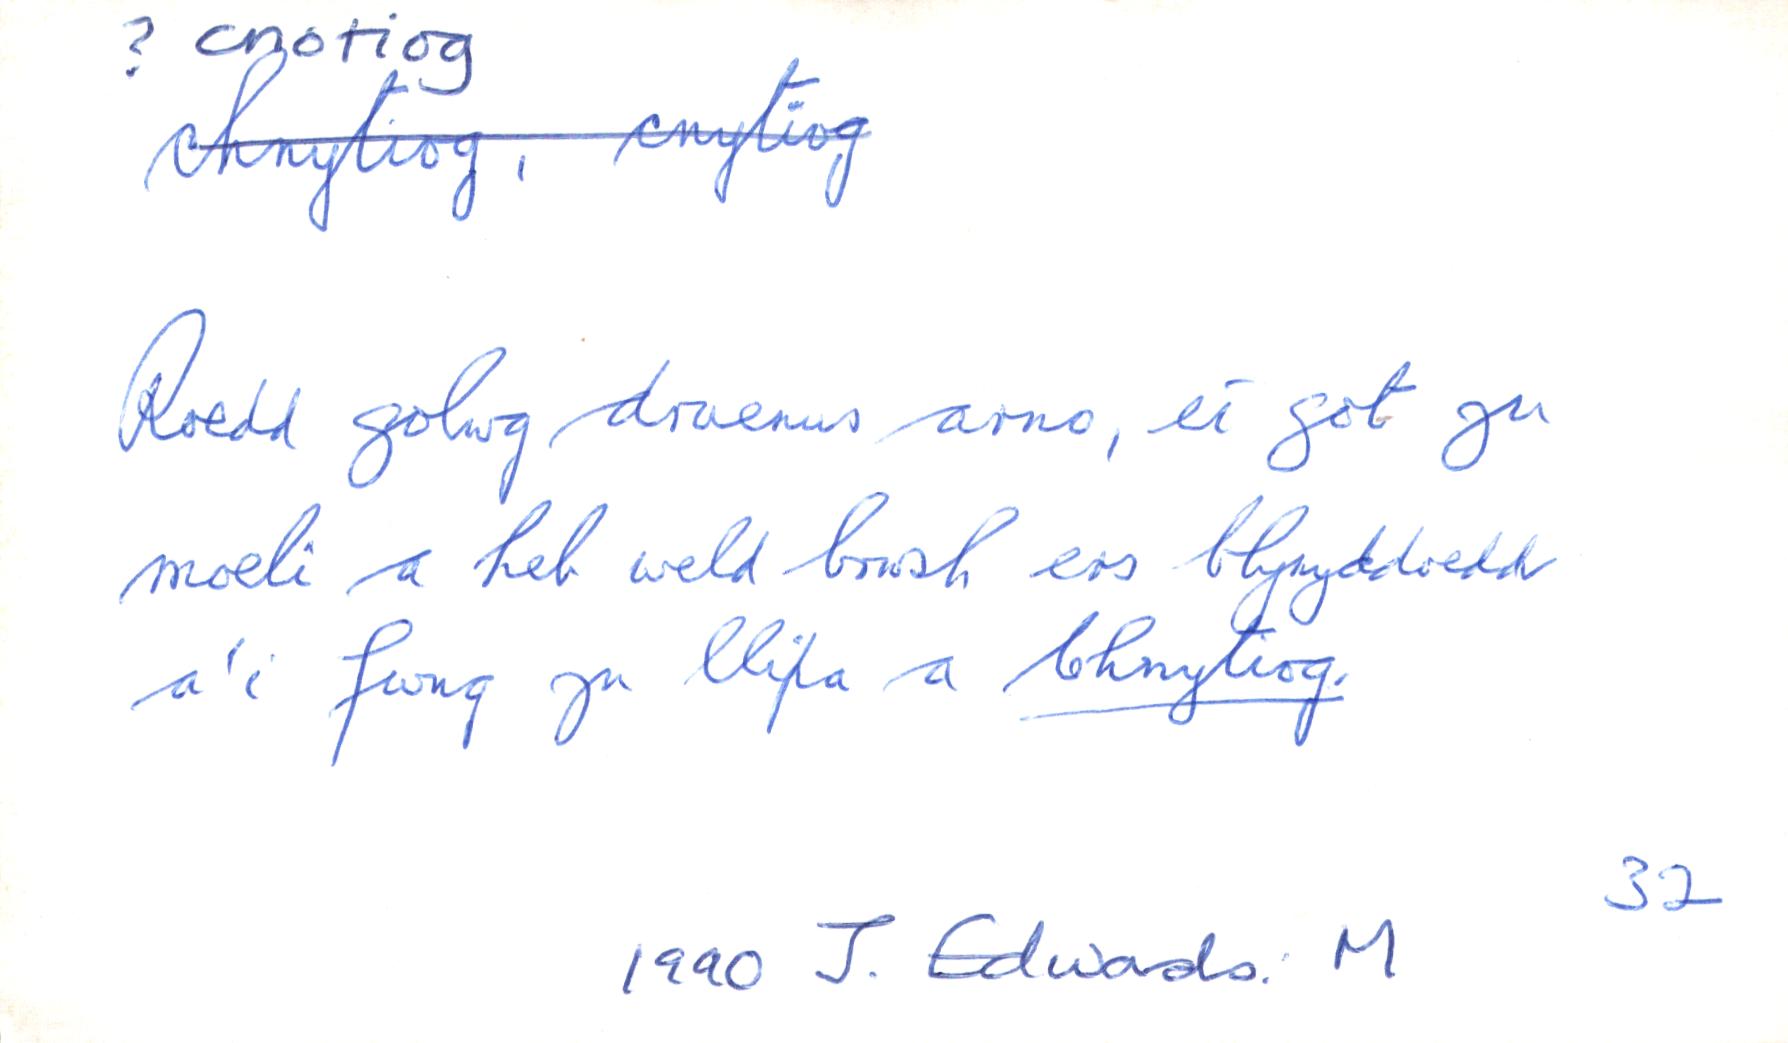 ? cnotiog
chnytiog, cnytiog
Roedd golwg druenus arno, ei got yn
moeli a heb weld brwsh ers blynyddoedd
a'i fwng yn llipa a chnytiog.
32
1990 J. Edwards: M